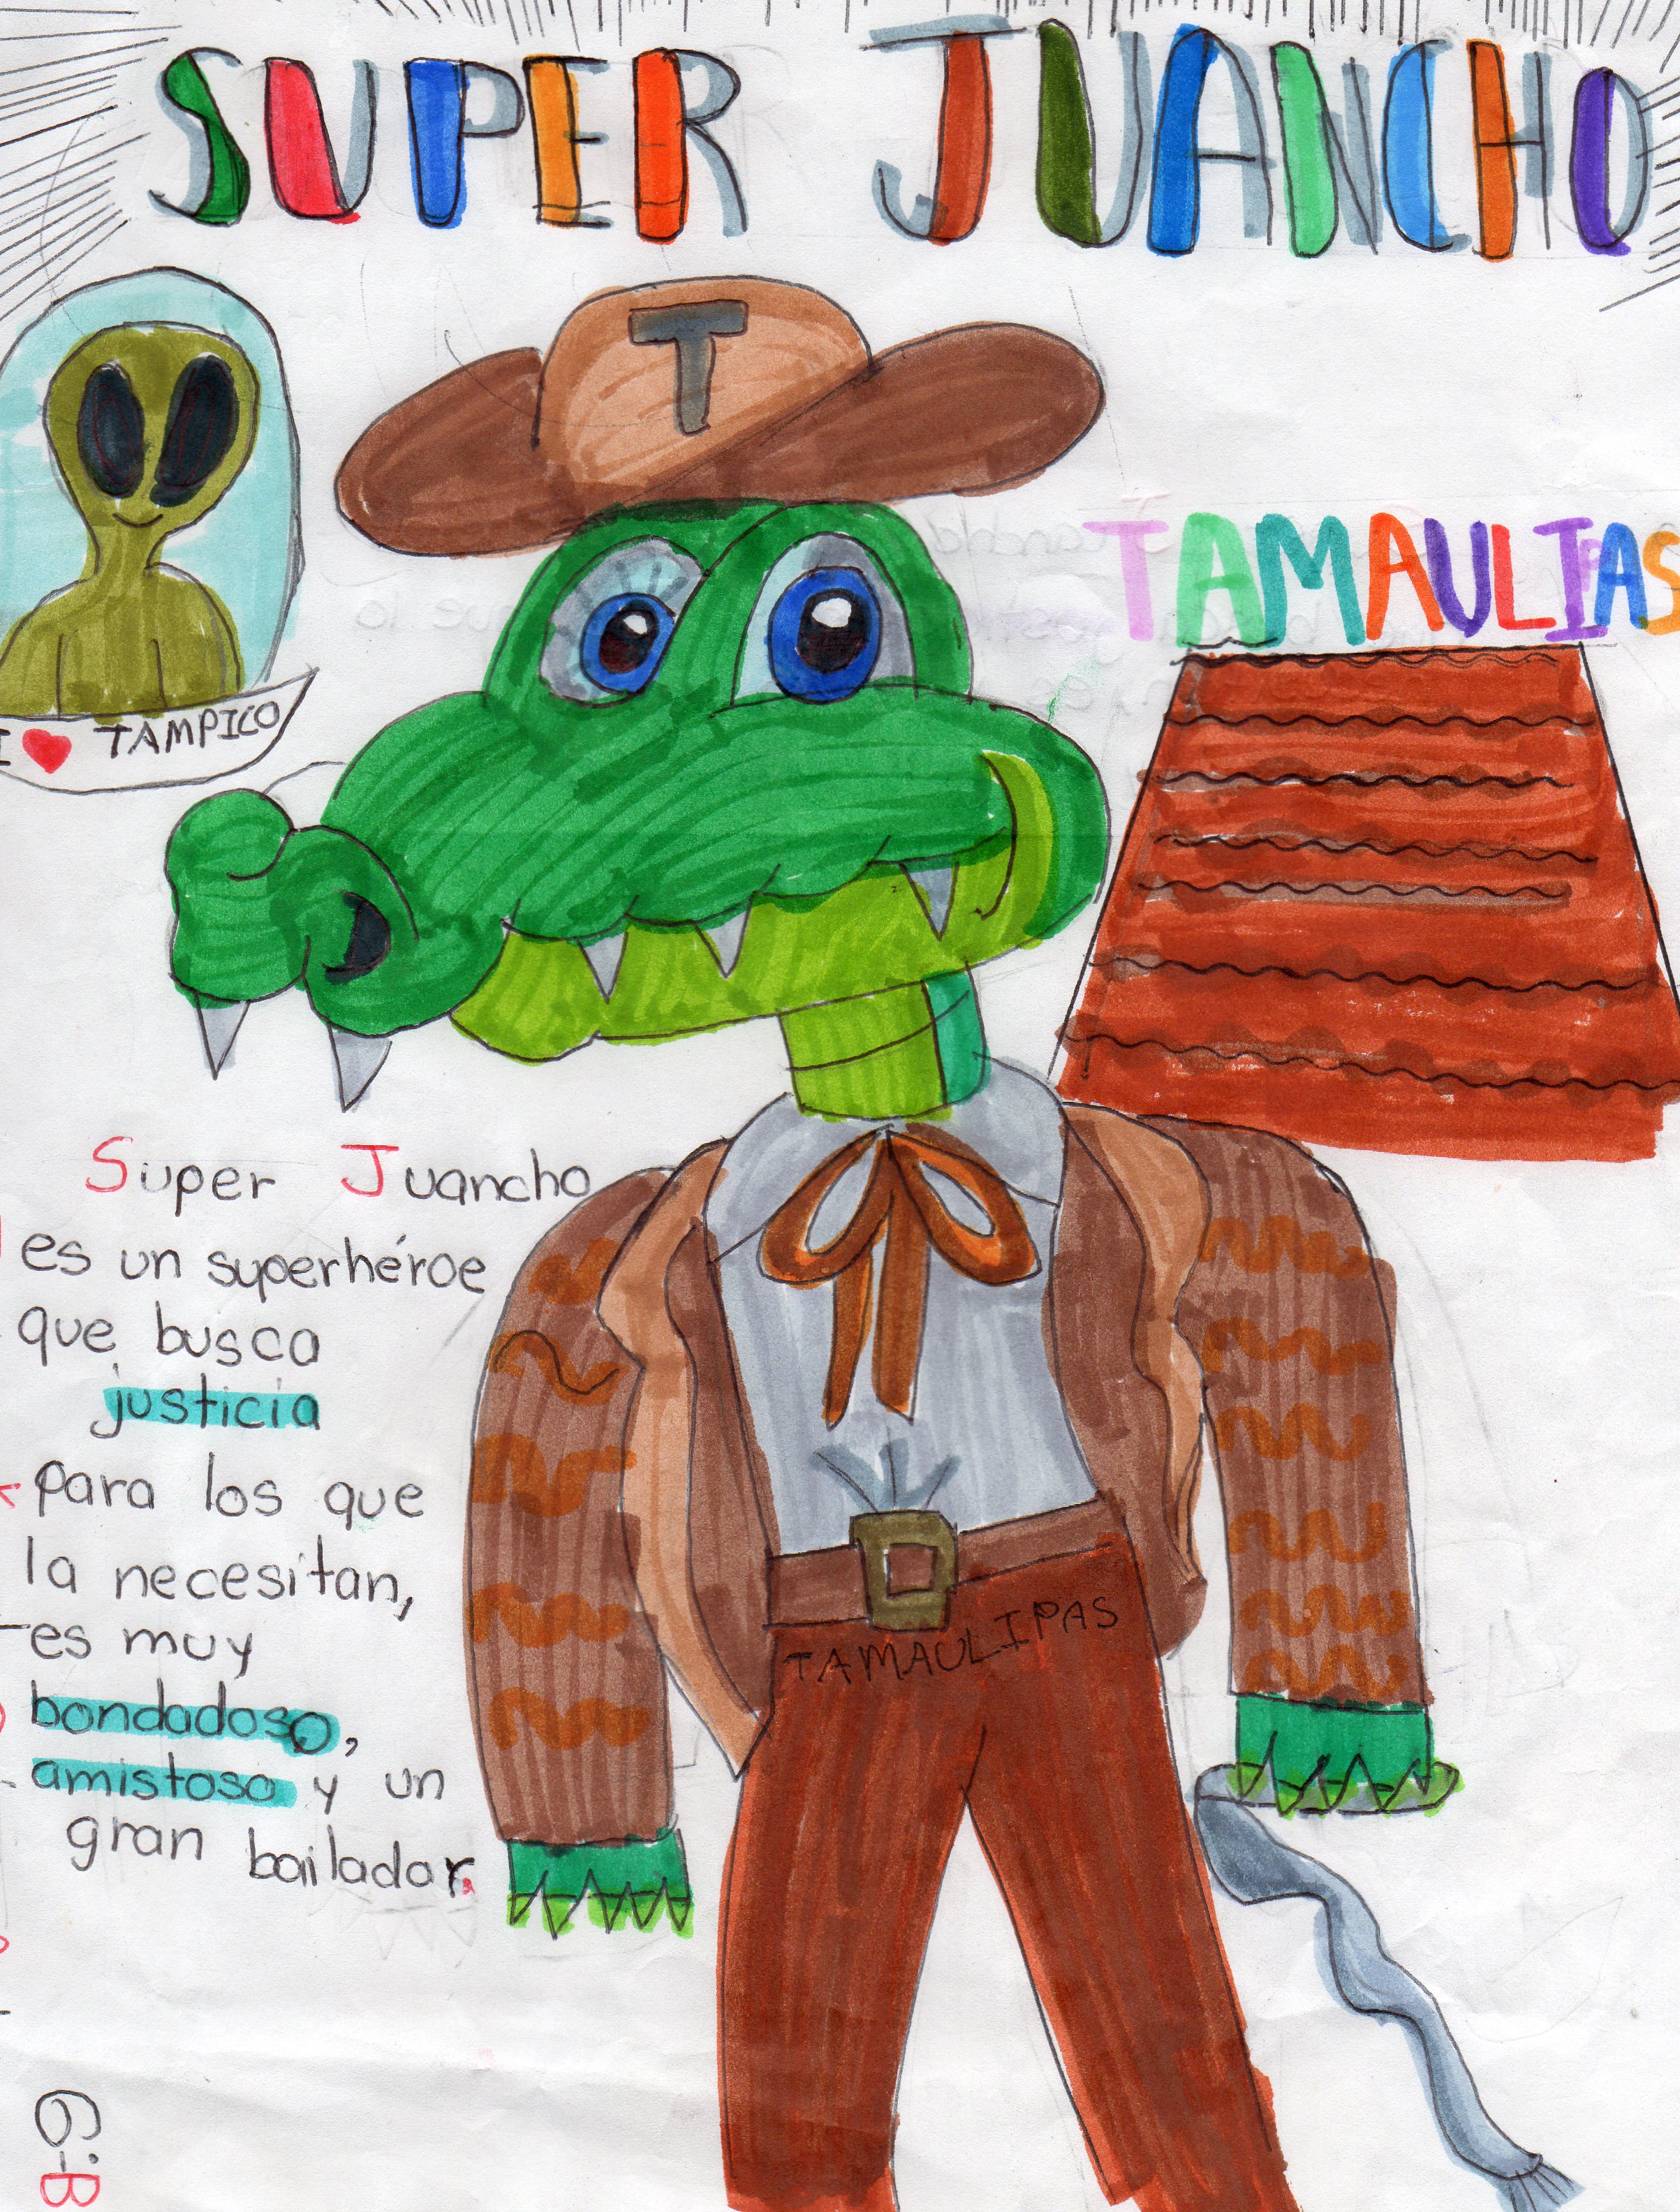 SUPER JUANCHO
T
TAMAULIPAS
I ❤ TAMPICO
Super Juancho
es un superhéroe
que busca
justicia
para los que
la necesitan,
es muy
bondadoso,
amistoso y un
gran bailador.
TAMAULIPAS